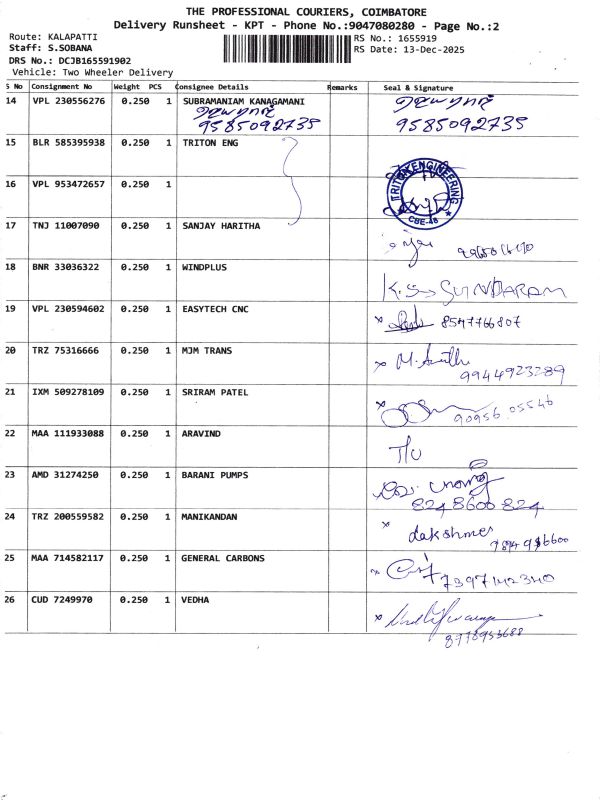 THE PROFESSIONAL COURIERS, COIMBATORE
Delivery Runsheet - KPT - Phone No.:9047080280 - Page No.:2
Route: KALAPATTI
RS No.: 1655919
Staff: S.SOBANA
RS Date: 13-Dec-2025
DRS No.: DCJB165591902
Vehicle: Two Wheeler Delivery
S No Consignment No Weight PCS Consignee Details Remarks Seal & Signature
14 VPL 230556276 0.250 1 SUBRAMANIAM KANAGAMANI
9585092735 9585092735
15 BLR 585395938 0.250 1 TRITON ENG
TRITON ENGINEERING
CBE-48
16 VPL 953472657 0.250 1
17 TNJ 11007090 0.250 1 SANJAY HARITHA
18 BNR 33036322 0.250 1 WINDPLUS
K.S. SUNDARAM
19 VPL 230594602 0.250 1 EASYTECH CNC
8547766807
20 TRZ 75316666 0.250 1 MJM TRANS
9944923289
21 IXM 509278109 0.250 1 SRIRAM PATEL
90956 05546
22 MAA 111933088 0.250 1 ARAVIND
23 AMD 31274250 0.250 1 BARANI PUMPS
824 8600 824
24 TRZ 200559582 0.250 1 MANIKANDAN
dakshmes
25 MAA 714582117 0.250 1 GENERAL CARBONS
7397142340
26 CUD 7249970 0.250 1 VEDHA